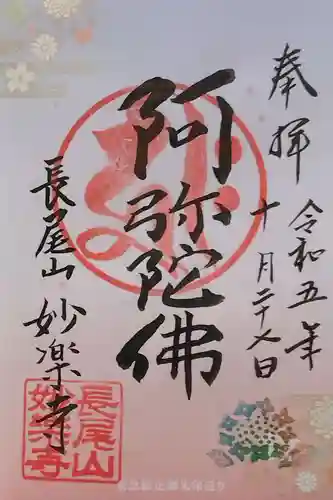 奉拝
令和五年
十月二十七日
阿弥陀佛
長尾山
妙楽寺
長尾山
妙楽寺